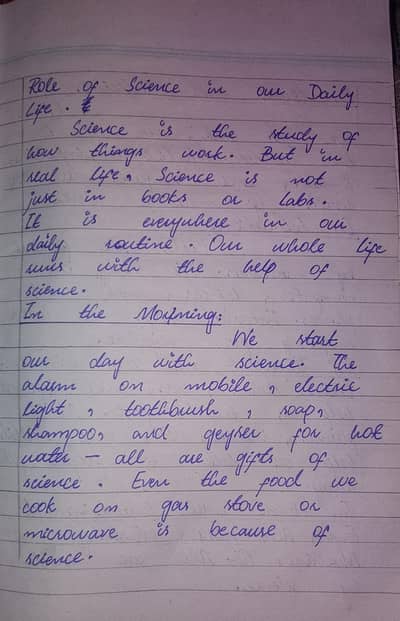 Role of Science in our Daily
Life.
Science is the study of
how things work. But in
real life, Science is not
just in books or Labs.
It is everywhere in our
daily routine. Our whole life
runs with the help of
science.
In the Morning:
We start
our day with science. The
alarm on mobile, electric
light, toothbrush, soap,
shampoo, and geyser for hot
water – all are gifts of
science. Even the food we
cook on gas stove or
microwave is because of
science.